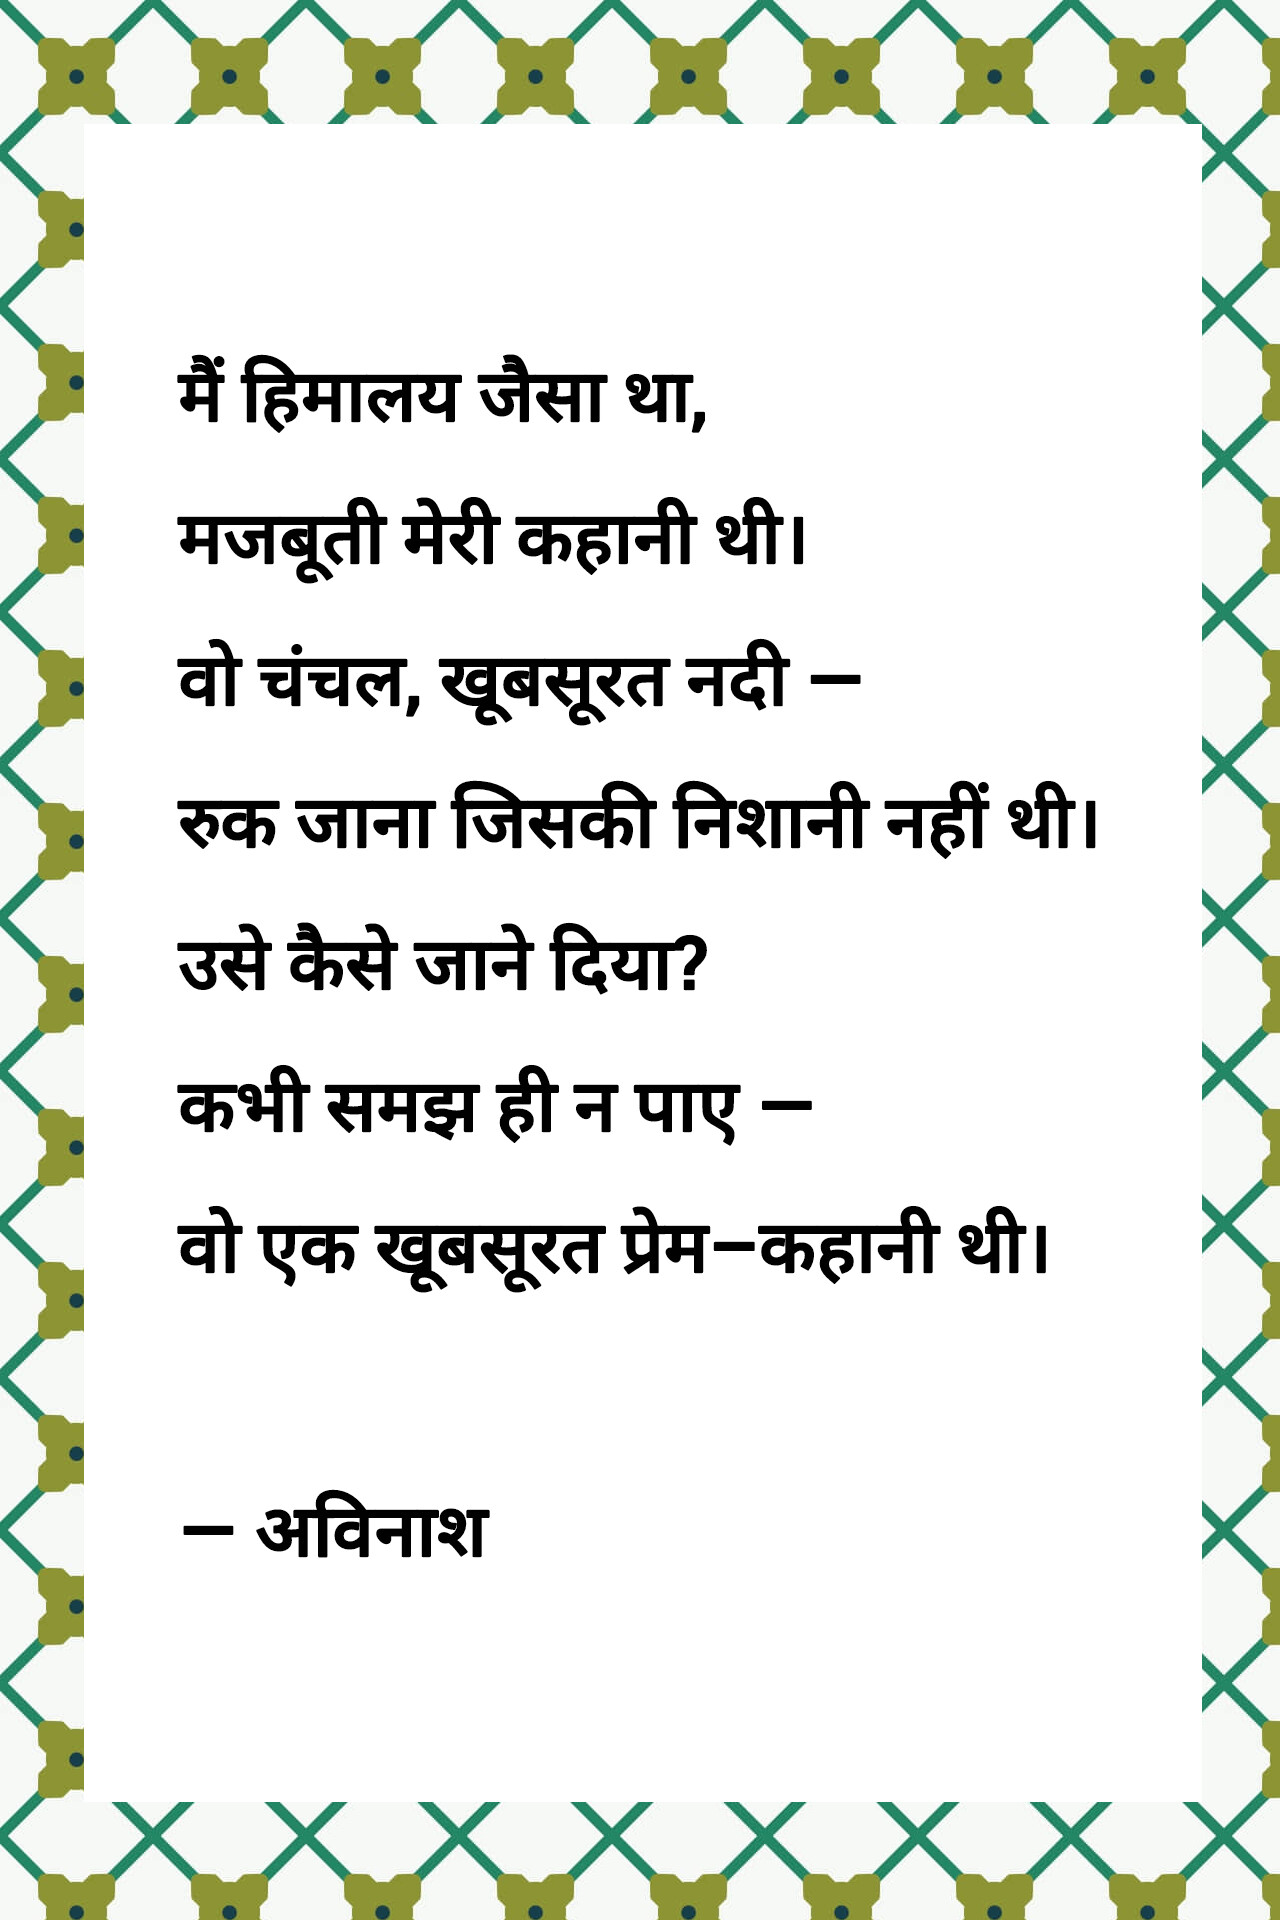 मैं हिमालय जैसा था,
मजबूती मेरी कहानी थी।
वो चंचल, खूबसूरत नदी —
रुक जाना जिसकी निशानी नहीं थी।
उसे कैसे जाने दिया?
कभी समझ ही न पाए —
वो एक खूबसूरत प्रेम–कहानी थी।
— अविनाश